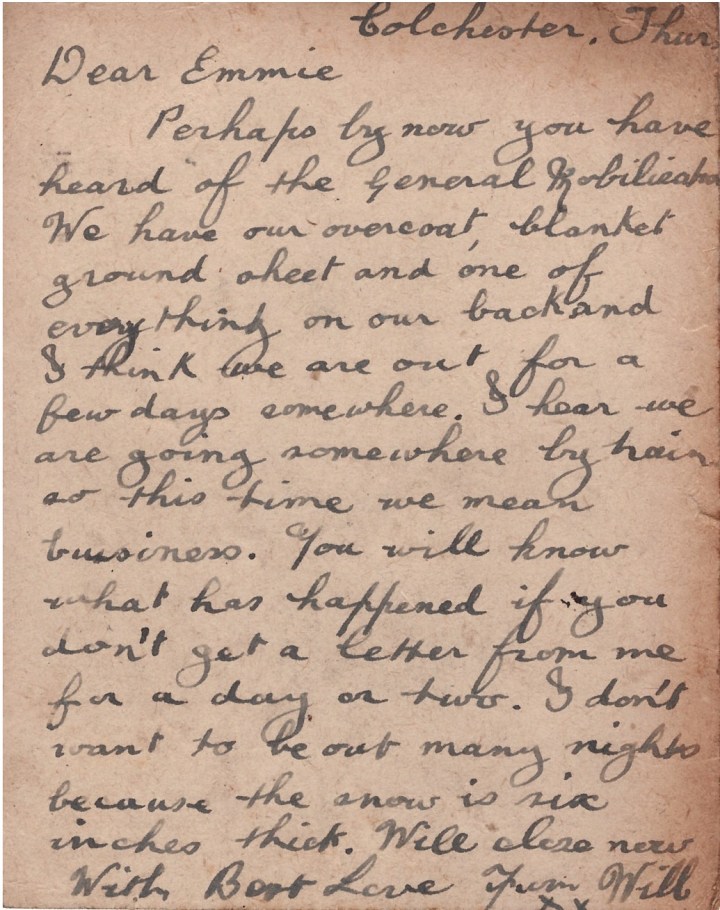 Colchester, Thur
Dear Emmie
Perhaps by now you have
heard of the General Mobilisatio
We have our overcoat, blanket
ground sheet and one of
everything on our back and
I think we are out for a
few days somewhere. I hear we
are going somewhere by train
so this time we mean
business. You will know
what has happened if you
don't get a letter from me
for a day or two. I don't
want to be out many nights
because the snow is six
inches thick. Will close now
With Best Love From Will
x x